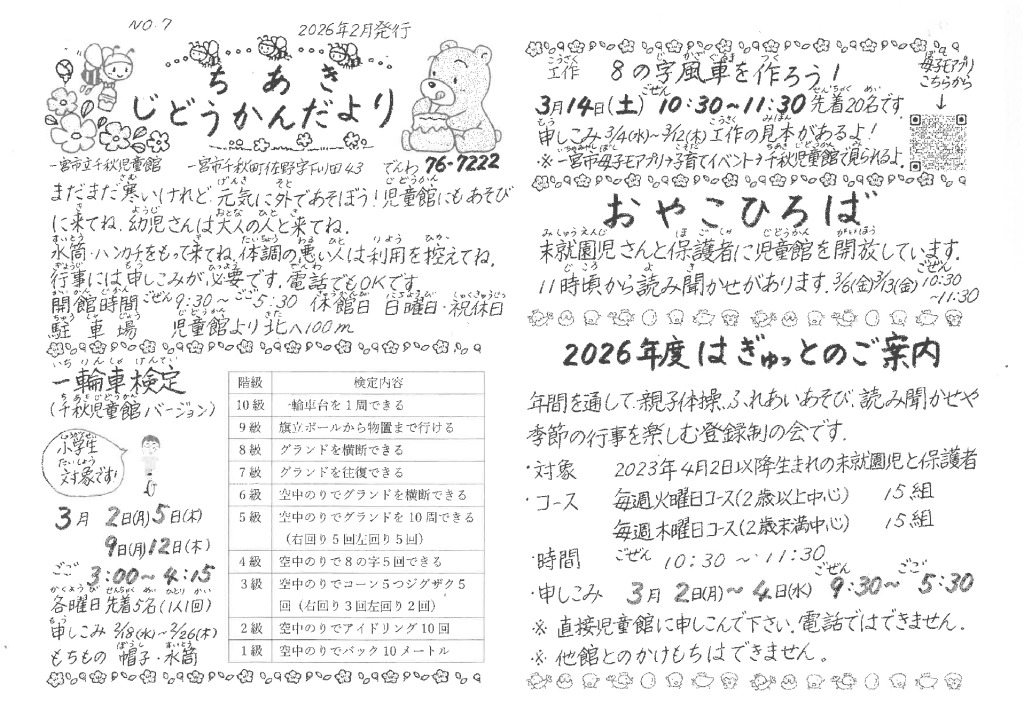 NO.7
2026年2月発行
ちあき
じどうかんだより
一宮市立千秋児童館 一宮市千秋町佐野字下川田43 でんわ 76-7222
まだまだ寒いけれど、元気に外であそぼう！児童館にもあそび
に来てね。幼児さんは大人の人と来てね。
水筒・ハンカチをもって来てね。体調の悪い人は利用を控えてね。
行事には、申しこみが必要です。電話でもOKです。
開館時間 ごぜん9:30～ごご5:30 休館日 日曜日・祝休日
駐車場 児童館より北へ100m
一輪車検定
(千秋児童館バージョン)
小学生
対象です！
3月 2日(月)5日(木)
9日(月)12日(木)
ごご 3:00～4:15
各曜日先着5名(1人1回)
申しこみ 2/18(水)～2/26(木)
もちもの 帽子・水筒
階級 検定内容
10級 一輪車台を1周できる
9級 旗立ポールから物置まで行ける
8級 グランドを横断できる
7級 グランドを往復できる
6級 空中のりでグランドを横断できる
5級 空中のりでグランドを10周できる
（右回り5回左回り5回）
4級 空中のりで8の字5回できる
3級 空中のりでコーン5つジグザク5
回（右回り3回左回り2回）
2級 空中のりでアイドリング10回
1級 空中のりでバック10メートル
工作 8の字風車を作ろう！
母子モアプリ
こちらから
↓
3月14日(土) 10:30～11:30 先着20名です。
申しこみ 3/4(水)～3/12(木)工作の見本があるよ！
※一宮市母子モアプリ→子育てイベント→千秋児童館で見られるよ。
おやこひろば
未就園児さんと保護者に児童館を開放しています。
11時頃から読み聞かせがあります。3/6(金)3/13(金)ごぜん10:30
～11:30
2026年度はぎゅっとのご案内
年間を通して、親子体操、ふれあいあそび、読み聞かせや
季節の行事を楽しむ登録制の会です。
・対象 2023年4月2日以降生まれの未就園児と保護者
・コース 毎週火曜日コース(2歳以上中心) 15組
毎週木曜日コース(2歳未満中心) 15組
・時間 ごぜん 10:30～11:30
・申しこみ 3月2日(月)～4日(水) ごぜん9:30～ごご5:30
※直接児童館に申しこんで下さい。電話ではできません。
※他館とのかけもちはできません。